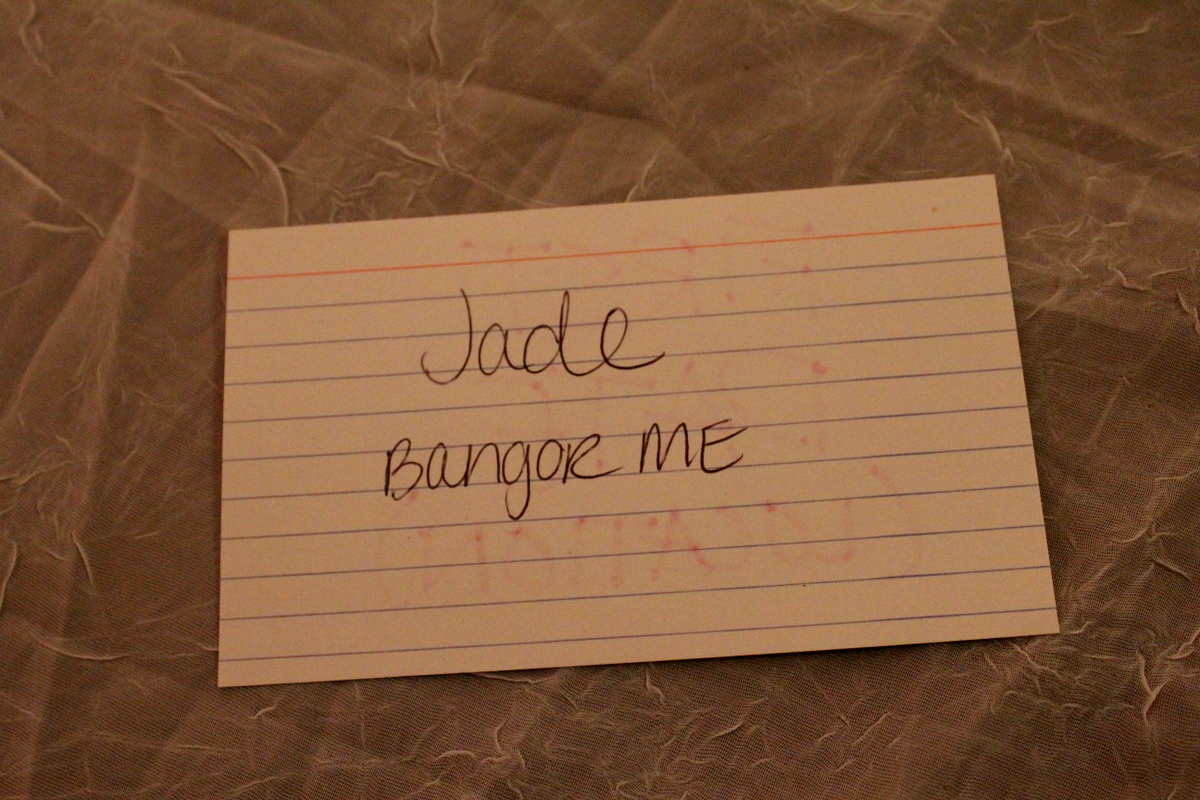 Jade
Bangor ME